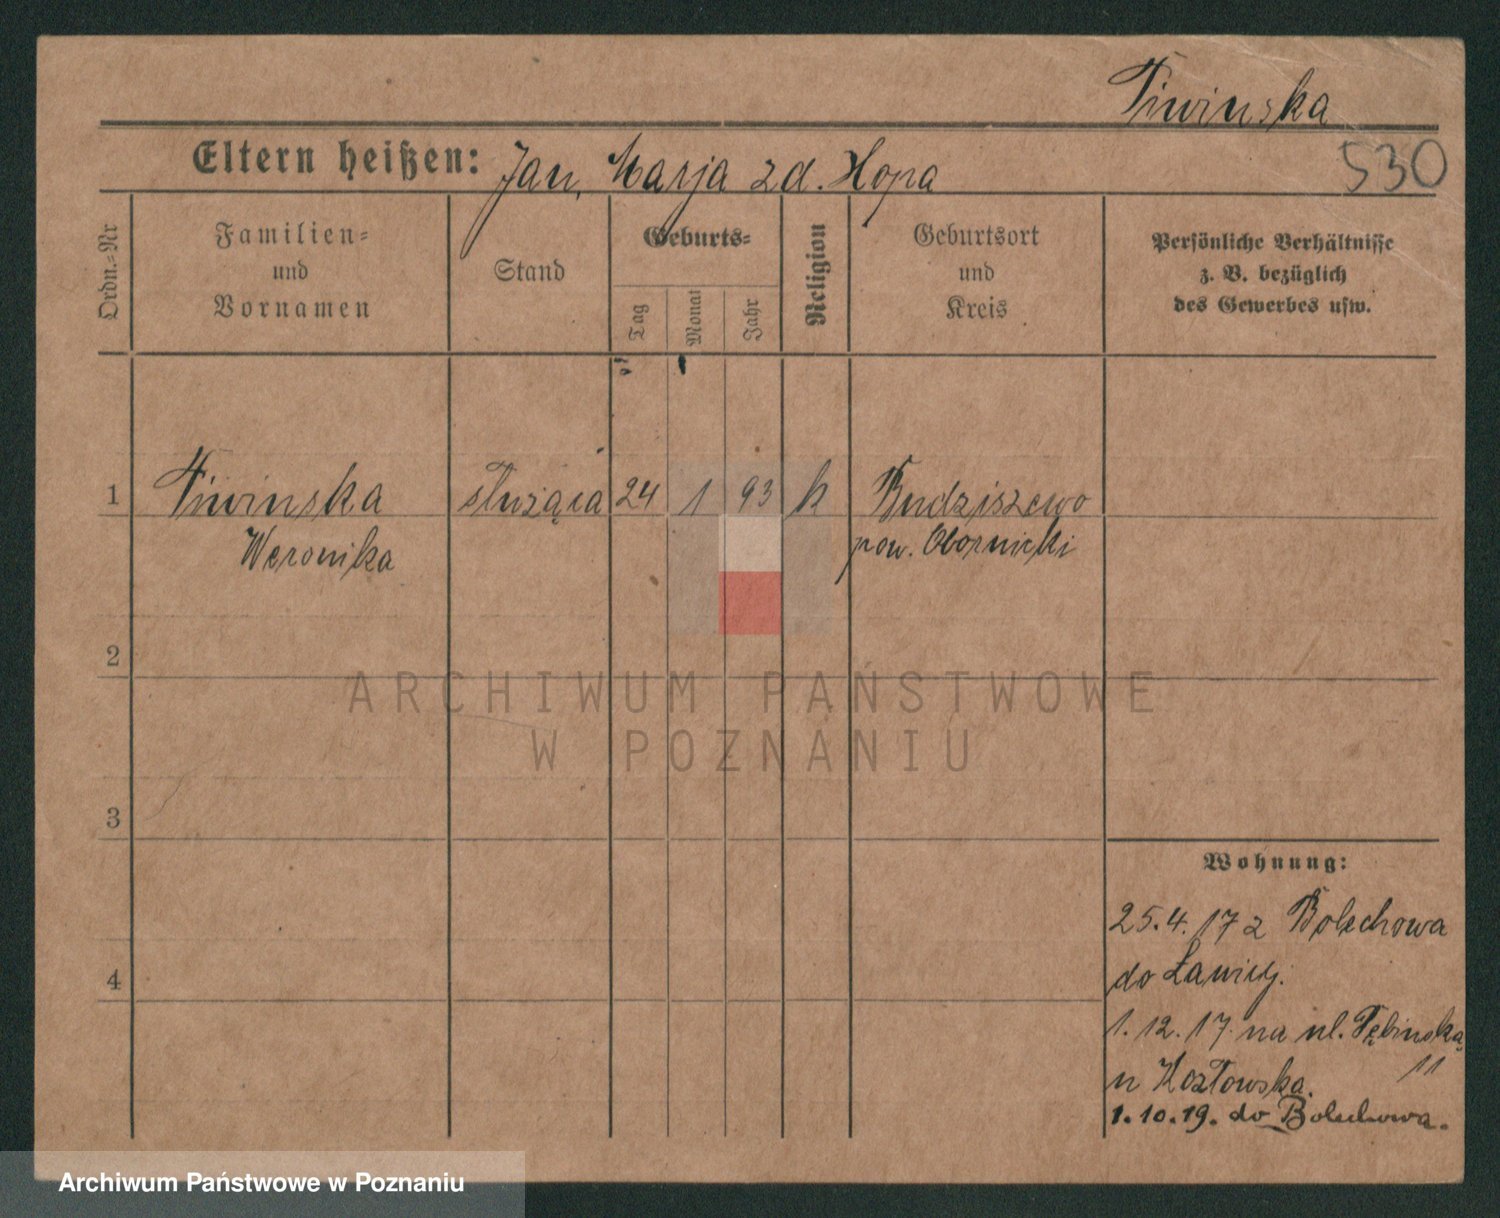 Piwinska
Eltern heißen: Jan, Marja zd. Kopa
530
Ordn.-Nr
Familien-
und
Vornamen
Stand
Geburts-
Tag
Monat
Jahr
Religion
Geburtsort
und
Kreis
Persönliche Verhältnisse
z. B. bezüglich
des Gewerbes usw.
1 Piwinska służąca 24 1 93 k Budziszewo
Weronika pow. Obornicki
2
ARCHIWUM PAŃSTWOWE
W POZNANIU
3
Wohnung:
25.4.17 z Bolechowa
4
do Ławicy.
1.12.17. na ul.
11
u Kozłowska.
1.10.19. do Bolechowa.
Archiwum Państwowe w Poznaniu